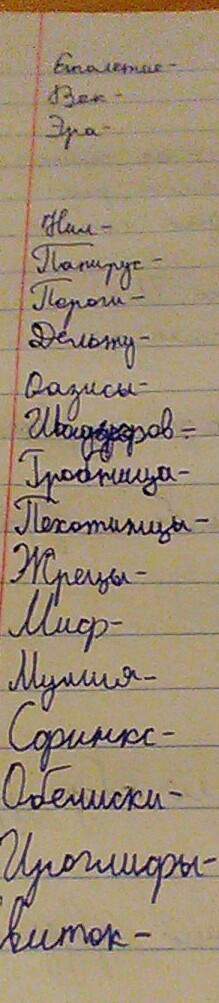 Столетие-
Век-
Эра-
Нил-
Папирус-
Пороги-
Дельту-
Оазисы-
Шадуфов-
Гробница-
Пехотинцы-
Жрецы-
Миф-
Мумия-
Сфинкс-
Обелиски-
Иероглифы-
виток-